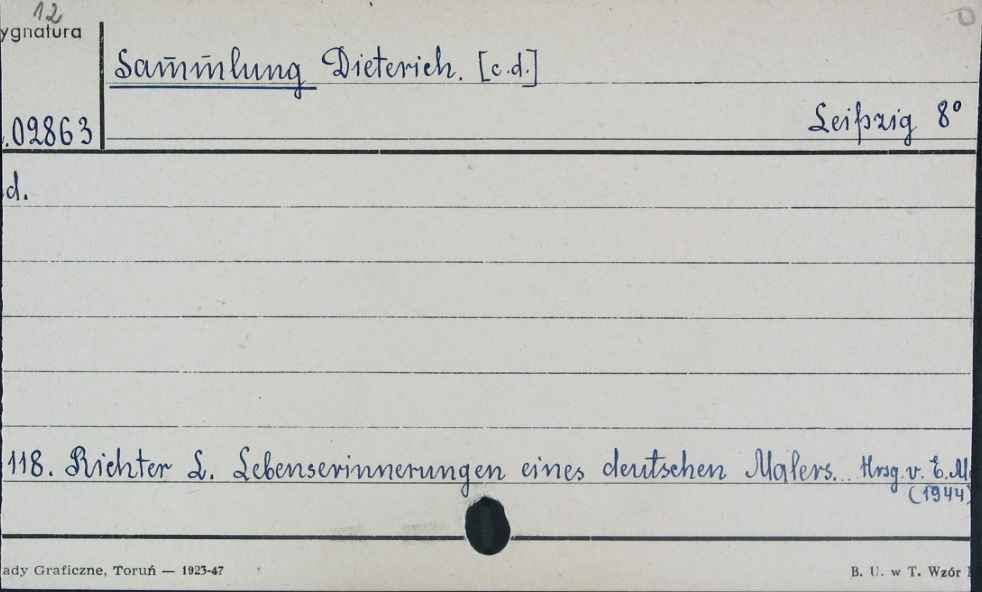 12
ygnatura
Sam̄m̄lung Dieterich. [c.d.]
.02863
Leipzig 8°
d.
118. Richter L. Lebenserinnerungen eines deutschen Malers... Hrsg. v. E. M
(1944)
ady Graficzne, Toruń — 1923-47
B. U. w T. Wzór